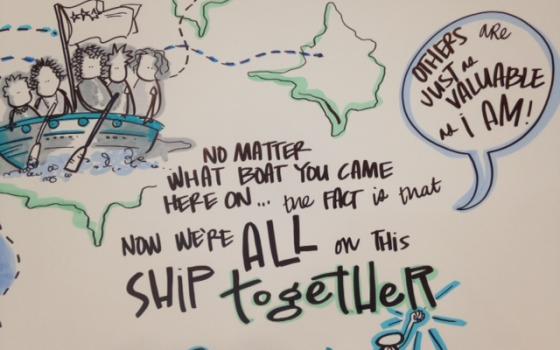 OTHERS are
JUST as
VALUABLE
as I AM!
NO MATTER
WHAT BOAT YOU CAME
HERE ON... the FACT is that
NOW WE'RE ALL on THIS
SHIP togetHeR